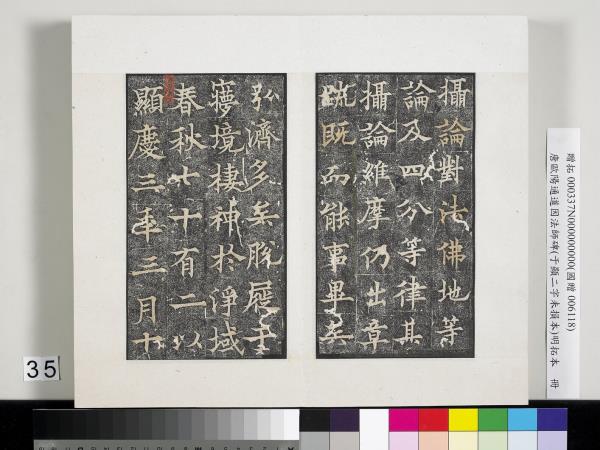 攝論對法佛地等
論及四分等律其
攝論維摩仍出章
疏既而能事畢矣
弘濟多矣脫屣于
寧境棲神於淨域
春秋七十有二以
顯慶三年三月十
贈拓 000337N000000000(國贈 006118)
唐歐陽通道因法師碑(于顯二字未損本)明拓本 冊
35